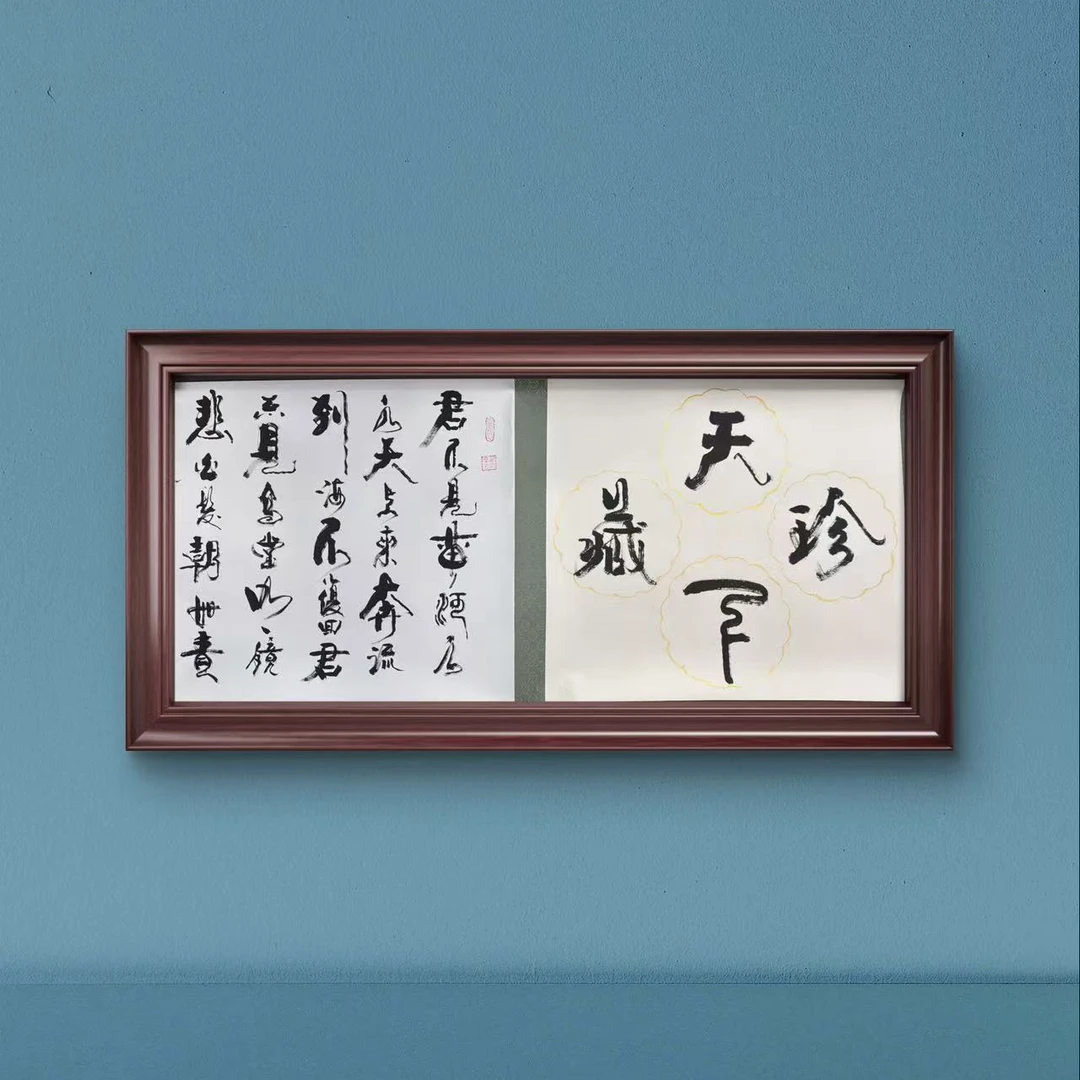 天下珍藏
君不見黃河之
水天上來奔流
到海不復回君
不見高堂明鏡
悲白髮朝如青